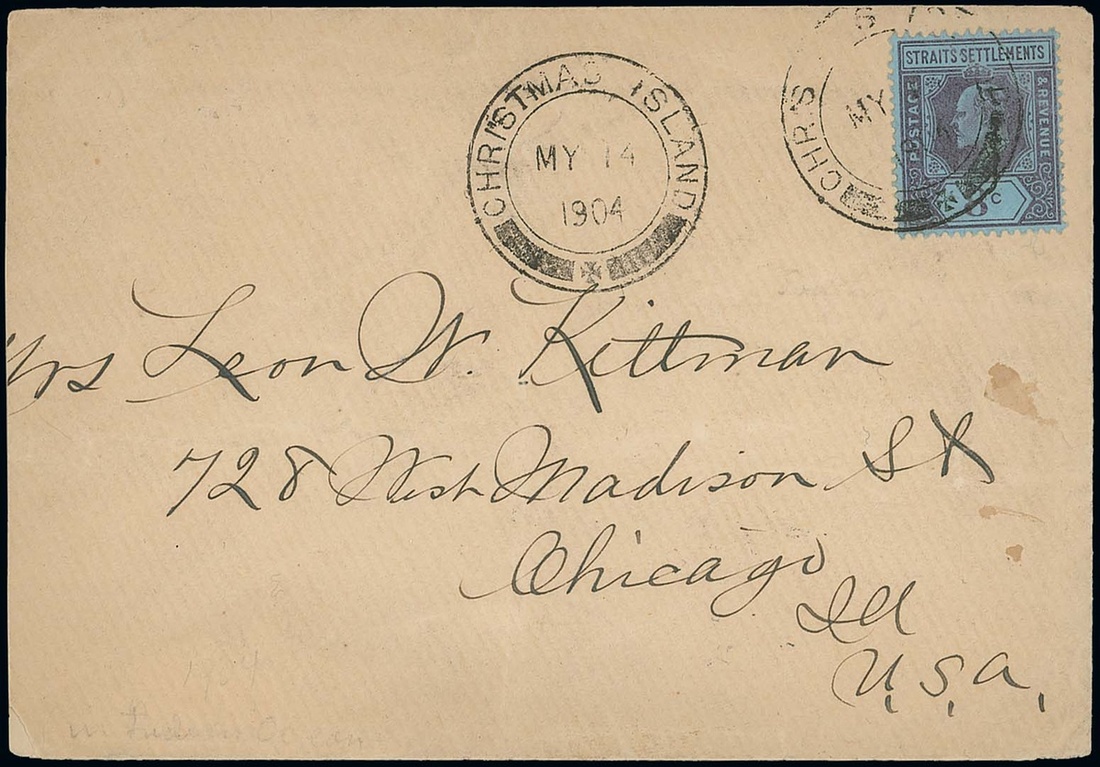 CHRISTMAS ISLAND
MY 14
1904
CHRIS
MY
STRAITS SETTLEMENTS
POSTAGE
& REVENUE
8 C
Mrs Leon W. Kittman
728 West Madison St
Chicago
Ill
U.S.A.
1904
in Indian Ocean